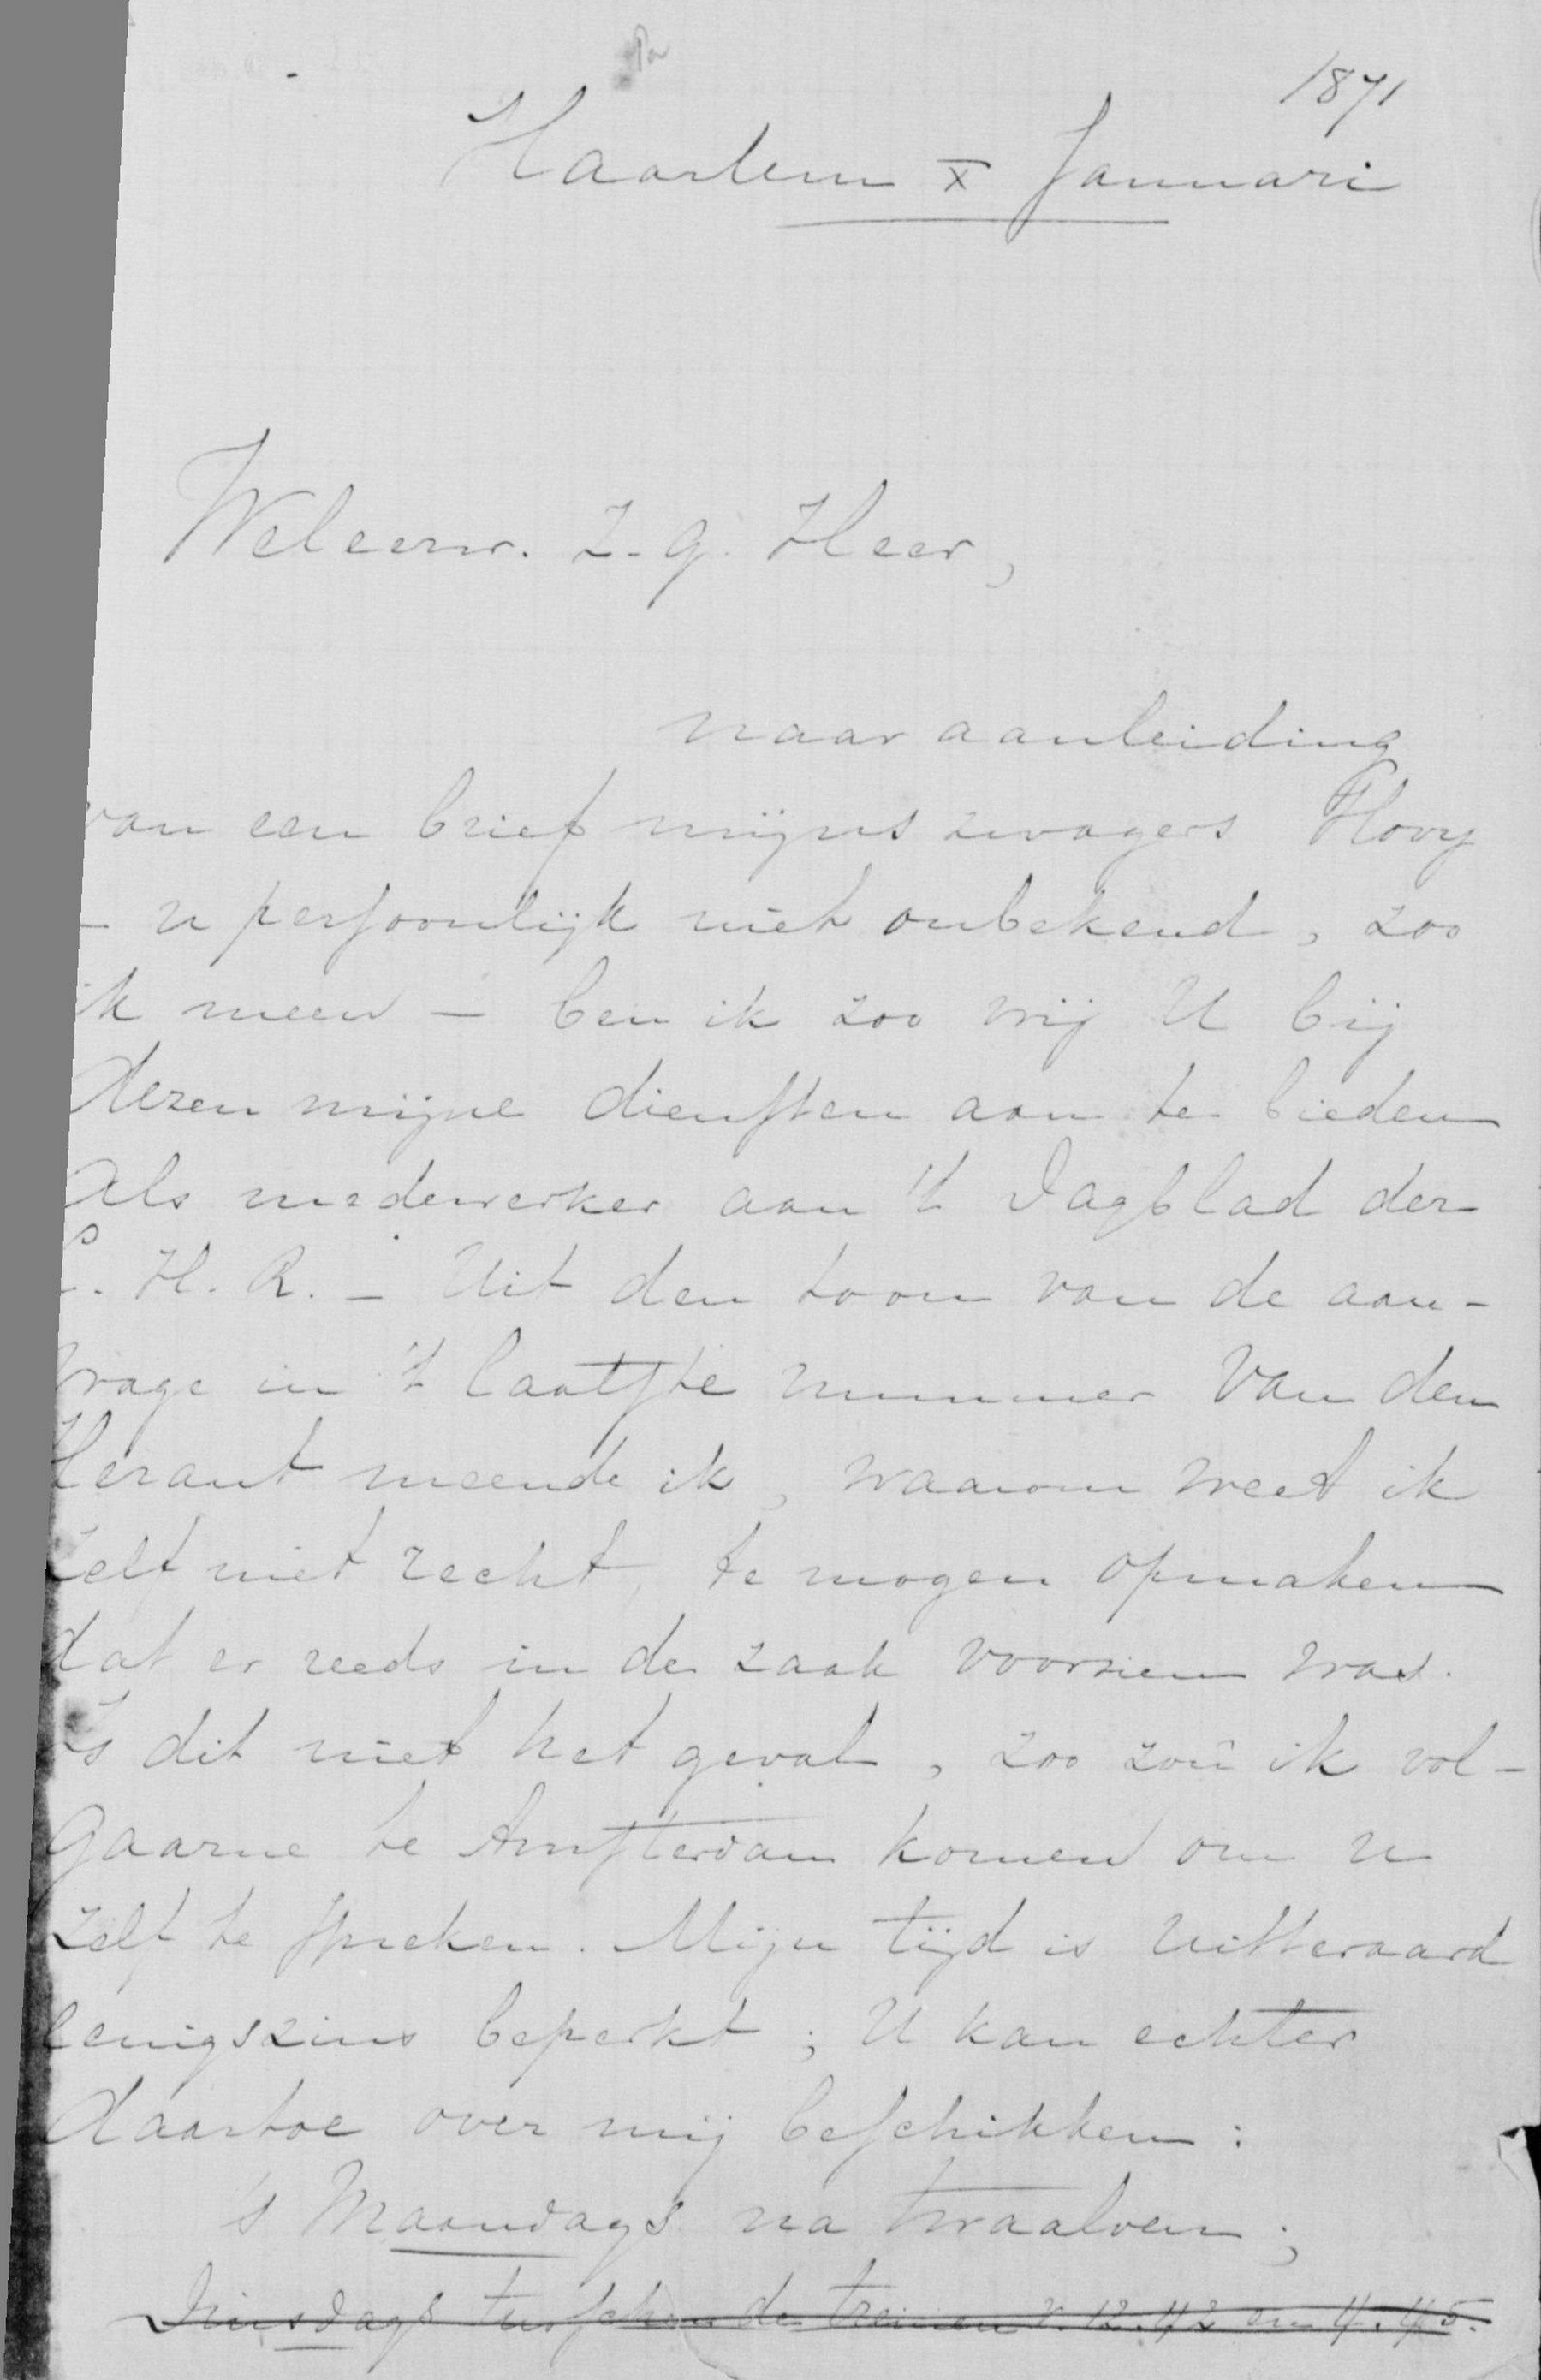 1871
Haarlem X Januari
Weleerw. Z. g. Heer,
naar aanleiding
van een brief mijns zwagers Hovy
- u persoonlijk niet onbekend, zoo
ik meen - ben ik zoo vrij U bij
dezen mijne diensten aan te bieden
als medewerker aan 't Dagblad der
C. H. R. - Uit den toon van de aan-
vrage in 't laatste nummer van den
Heraut meende ik, waarom weet ik
zelf niet recht, te mogen opmaken
dat er reeds in de zaak voorzien was.
Is dit niet het geval, zoo zou ik vol-
gaarne te Amsterdam komen om u
zelf te spreken. Mijn tijd is uitteraard
eenigszins beperkt; U kan echter
daartoe over mij beschikken:
's Maandags na twaalven;
Dinsdags tusschen de treinen v. 12.42 en 4.45.